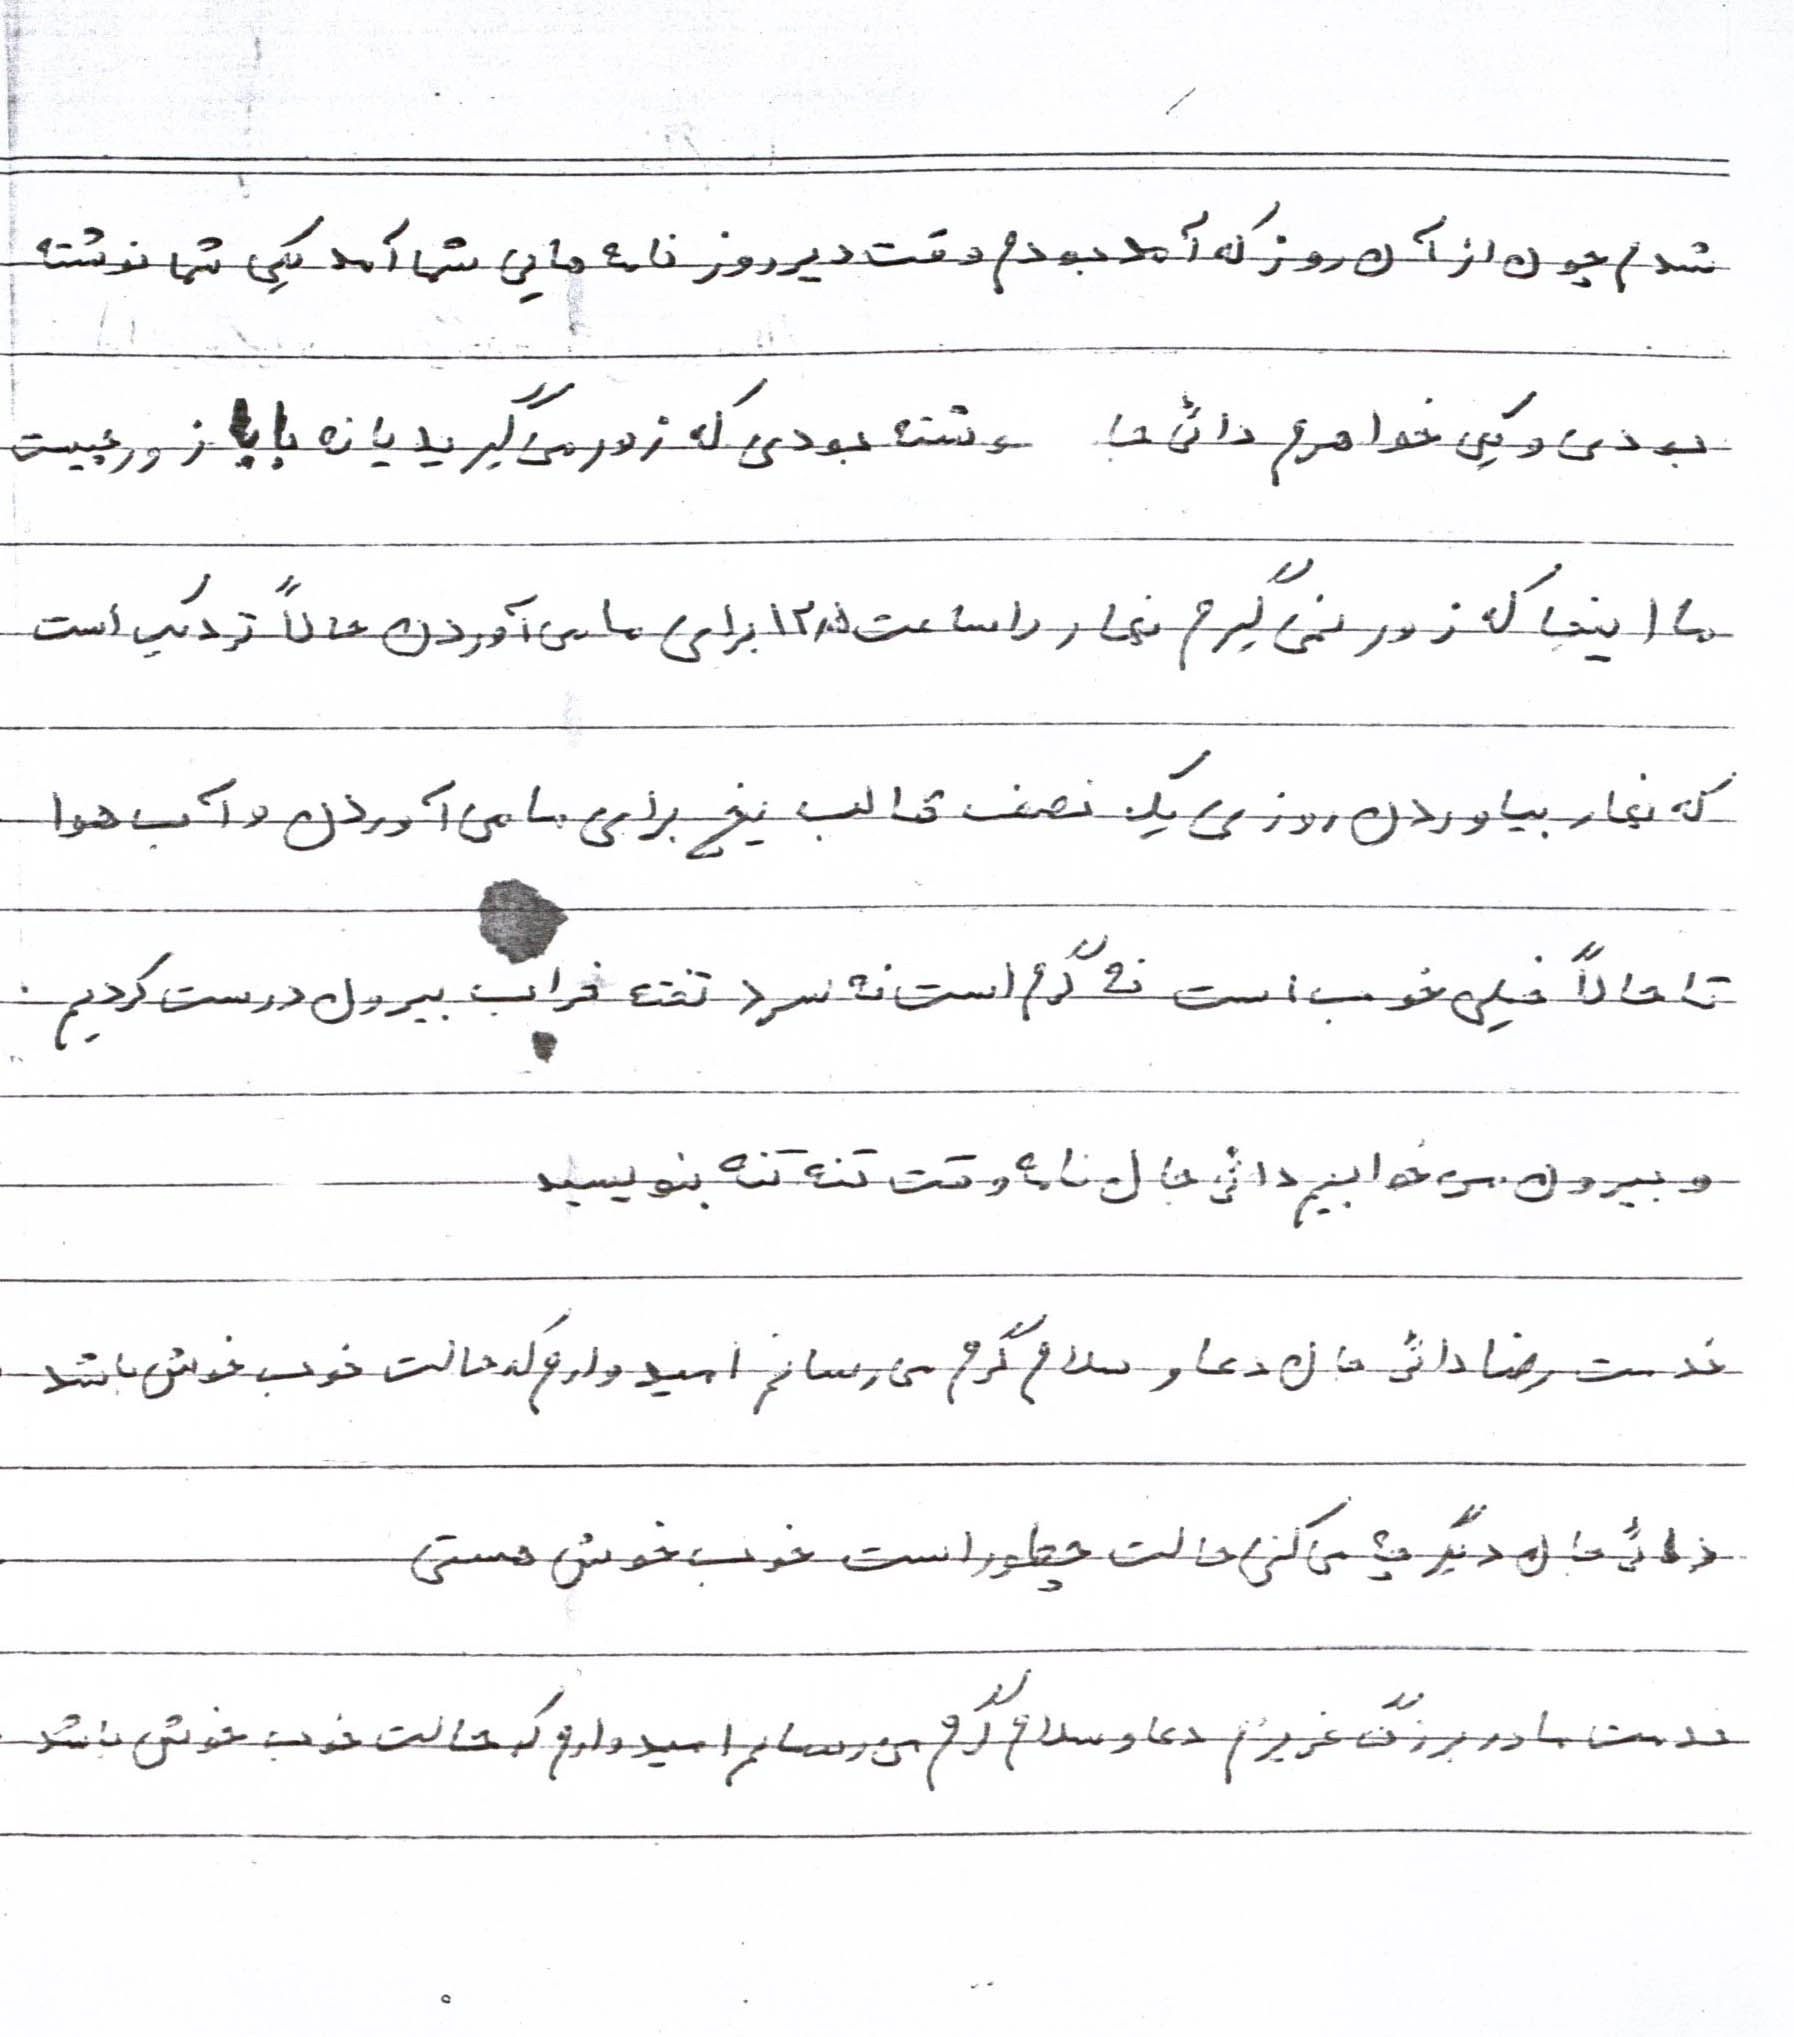 شدم چون از آن روز که آمد بودم وقت دیر روز نامه هایی شما آمد یکی شما نوشته
بودی و یکی خواهرم دائی جا نوشته بودی که زور می گیرید یا نه بابا زور چیست
ما اینجا که زور نمی گیرم نهار را ساعت ۱۲/۵ برای ما می آوردن حالاً نزدیک است
که نهار بیاوردن روزی یک نصف قالب یخ برای ما می آوردن و آب هوا
تا حالاً خیلی خوب است نه گرم است نه سرد تخته خراب بیرون درست کردیم .
و بیرون می خوابیم دائی جان نامه وقت تنه تنه بنویسید
خدمت رضا دائی جان دعا و سلام گرم می رسانم امیدوارم که حالت خوب خوش باشد
دائی جان دیگر چه می کنی حالت چطور است خوب خوش هستی
خدمت مادر بزرگ عزیزم دعا و سلام گرم می رسانم امیدوارم که حالت خوب خوش باشد